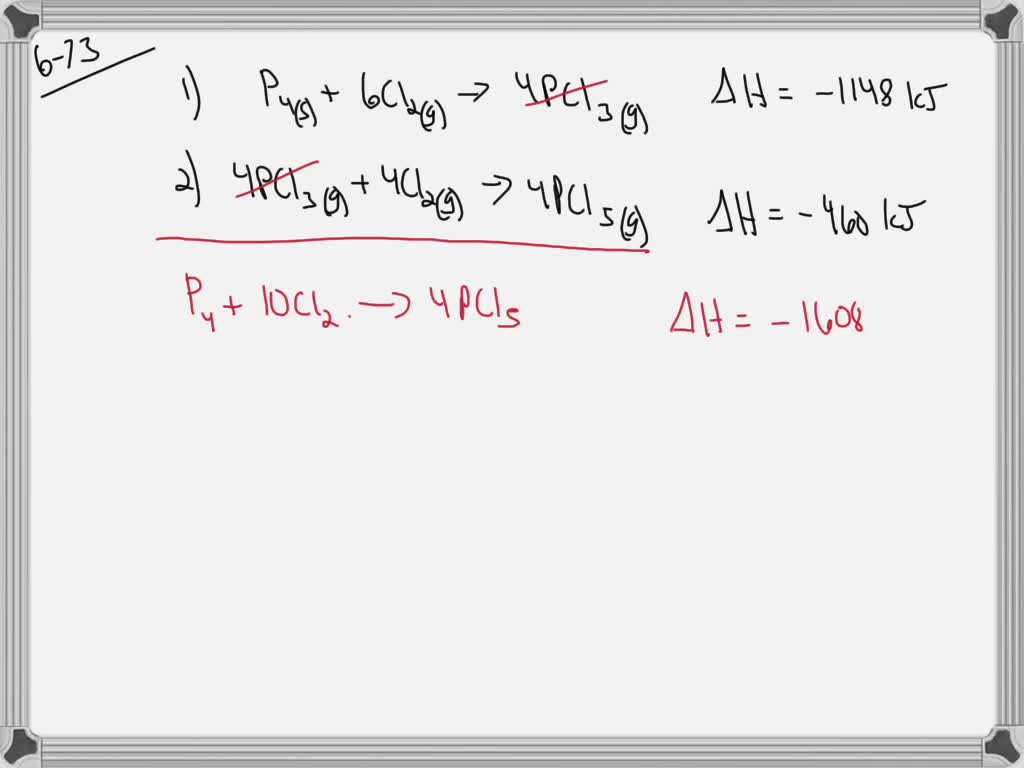 6-73
1) P4(s) + 6Cl2(g) → 4PCl3(g) ΔH = -1148 kJ
2) 4PCl3(g) + 4Cl2(g) → 4PCl5(g) ΔH = -460 kJ
P4 + 10Cl2. → 4PCl5 ΔH = -1608